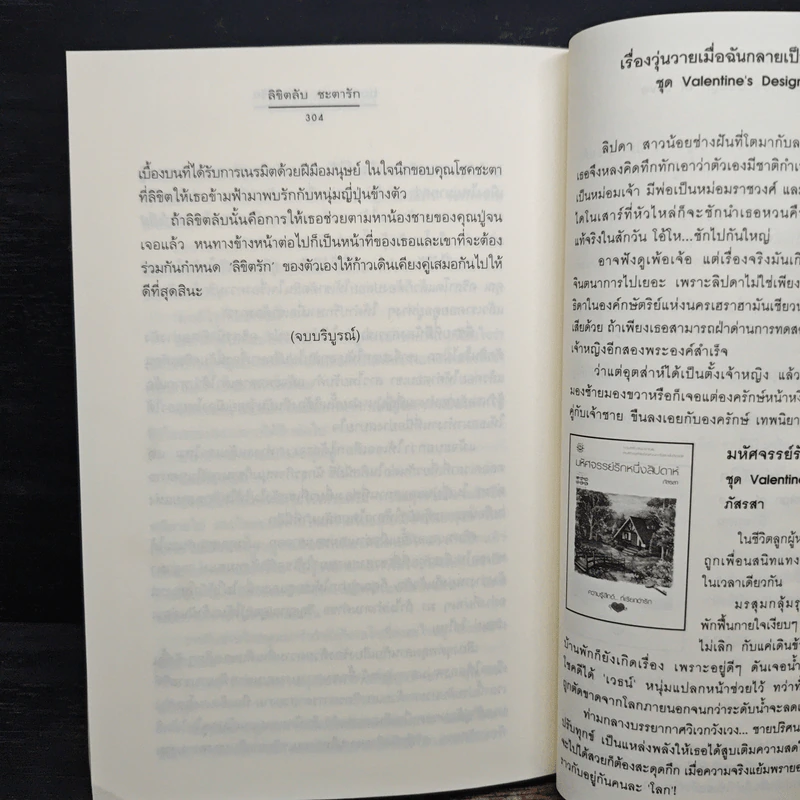 ลิขิตลับ ชะตารัก
304
เบื้องบนที่ได้รับการเนรมิตด้วยฝีมือมนุษย์ ในใจนึกขอบคุณโชคชะตา
ที่ลิขิตให้เธอข้ามฟ้ามาพบรักกับหนุ่มญี่ปุ่นข้างตัว
ถ้าลิขิตลับนั้นคือการให้เธอช่วยตามหาน้องชายของคุณปู่จน
เจอแล้ว หนทางข้างหน้าต่อไปก็เป็นหน้าที่ของเธอและเขาที่จะต้อง
ร่วมกันกำหนด 'ลิขิตรัก' ของตัวเองให้ก้าวเดินเคียงคู่เสมอกันไปให้
ดีที่สุดสินะ
(จบบริบูรณ์)
เรื่องวุ่นวายเมื่อฉันกลายเป็
ชุด Valentine's Design
ลิปดา สาวน้อยช่างฝันที่โตมากับล
เธอจึงหลงคิดทึกทักเอาว่าตัวเองมีชาติกำเ
เป็นหม่อมเจ้า มีพ่อเป็นหม่อมราชวงศ์ แล
ไดในเสาร์ที่หัวไหล่ก็จะชักนำเธอหวนคื
แท้จริงในสักวัน โอ้โห...ชักไปกันใหญ่
อาจฟังดูเพ้อเจ้อ แต่เรื่องจริงมันเกิ
จินตนาการไปเยอะ เพราะลิปดาไม่ใช่เพียง
ธิดาในองค์กษัตริย์แห่งนครเฮราฮามันเชียวน
เสียด้วย ถ้าเพียงเธอสามารถฝ่าด่านการทดสอ
เจ้าหญิงอีกสองพระองค์สำเร็จ
ว่าแต่อุตส่าห์ได้เป็นตั้งเจ้าหญิง แล้ว
มองซ้ายมองขวาหรือก็เจอแต่องครักษ์หน้าหงิ
คู่กับเจ้าชาย ขืนลงเอยกับองครักษ์ เทพนิยา
มหัศจรรย์รักหนึ่งสัปดาห์
ภัสรสา
ความรู้สึกดี... ที่เรียกว่ารัก
มหัศจรรย์รั
ชุด Valentine
ภัสรสา
ในชีวิตลูกผู้ห
ถูกเพื่อนสนิทแทง
ในเวลาเดียวกัน
มรสุมกลุ้มรุ
พักฟื้นกายใจเงียบๆ
ไม่เลิก กับแค่เดินข้
บ้านพักก็ยังเกิดเรื่อง เพราะอยู่ดีๆ ดันเจอน้ำ
โชคดีได้ 'เวธน์' หนุ่มแปลกหน้าช่วยไว้ ทว่าทั้
ถูกตัดขาดจากโลกภายนอกจนกว่าระดับน้ำจะลดล
ท่ามกลางบรรยากาศวิเวกวังเวง... ชายปริศน
ปรับทุกข์ เป็นแหล่งพลังให้เธอได้สูบเติมความสดใ
จะไปได้สวยก็ต้องสะดุดกึก เมื่อความจริงแย้มพรายอ
ราวกับอยู่กันคนละ 'โลก'!